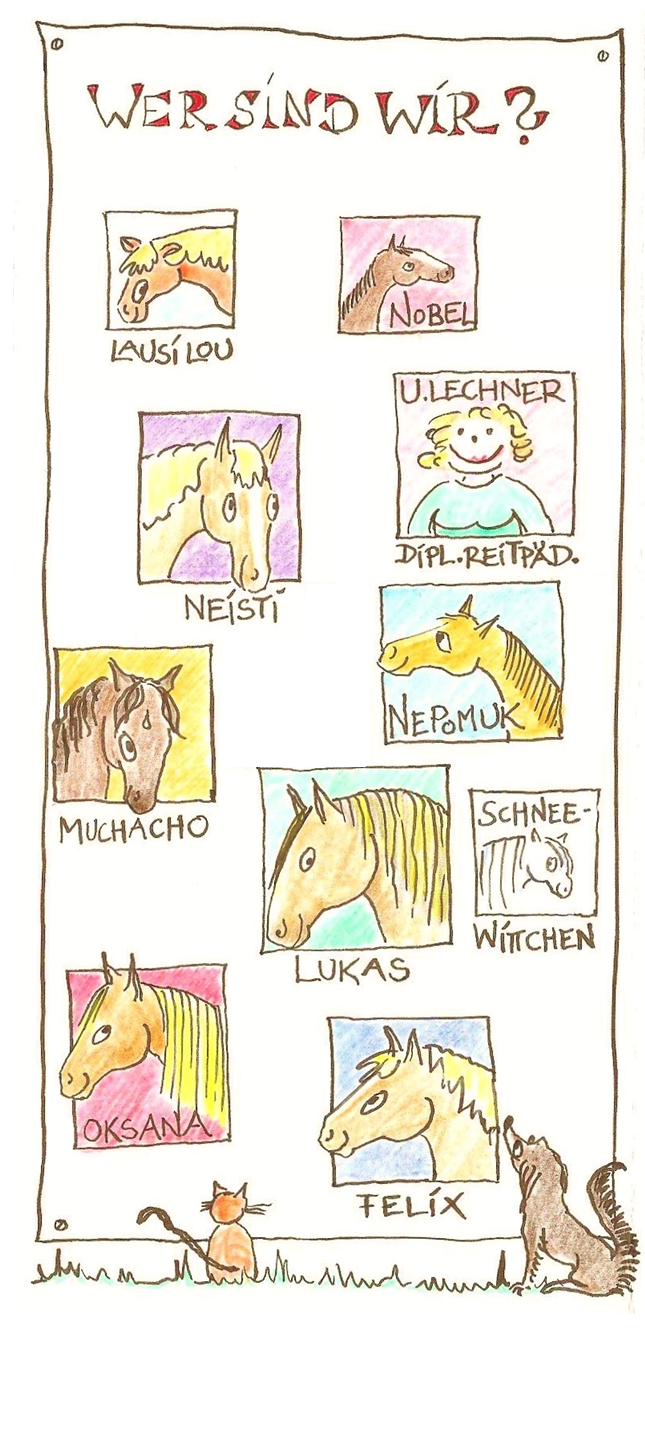 WER SIND WIR?
LAUSI LOU
NOBEL
U.LECHNER
DIPL.REITPÄD.
NEISTI
NEPOMUK
MUCHACHO
LUKAS
SCHNEE-
WITTCHEN
OKSANA
FELIX